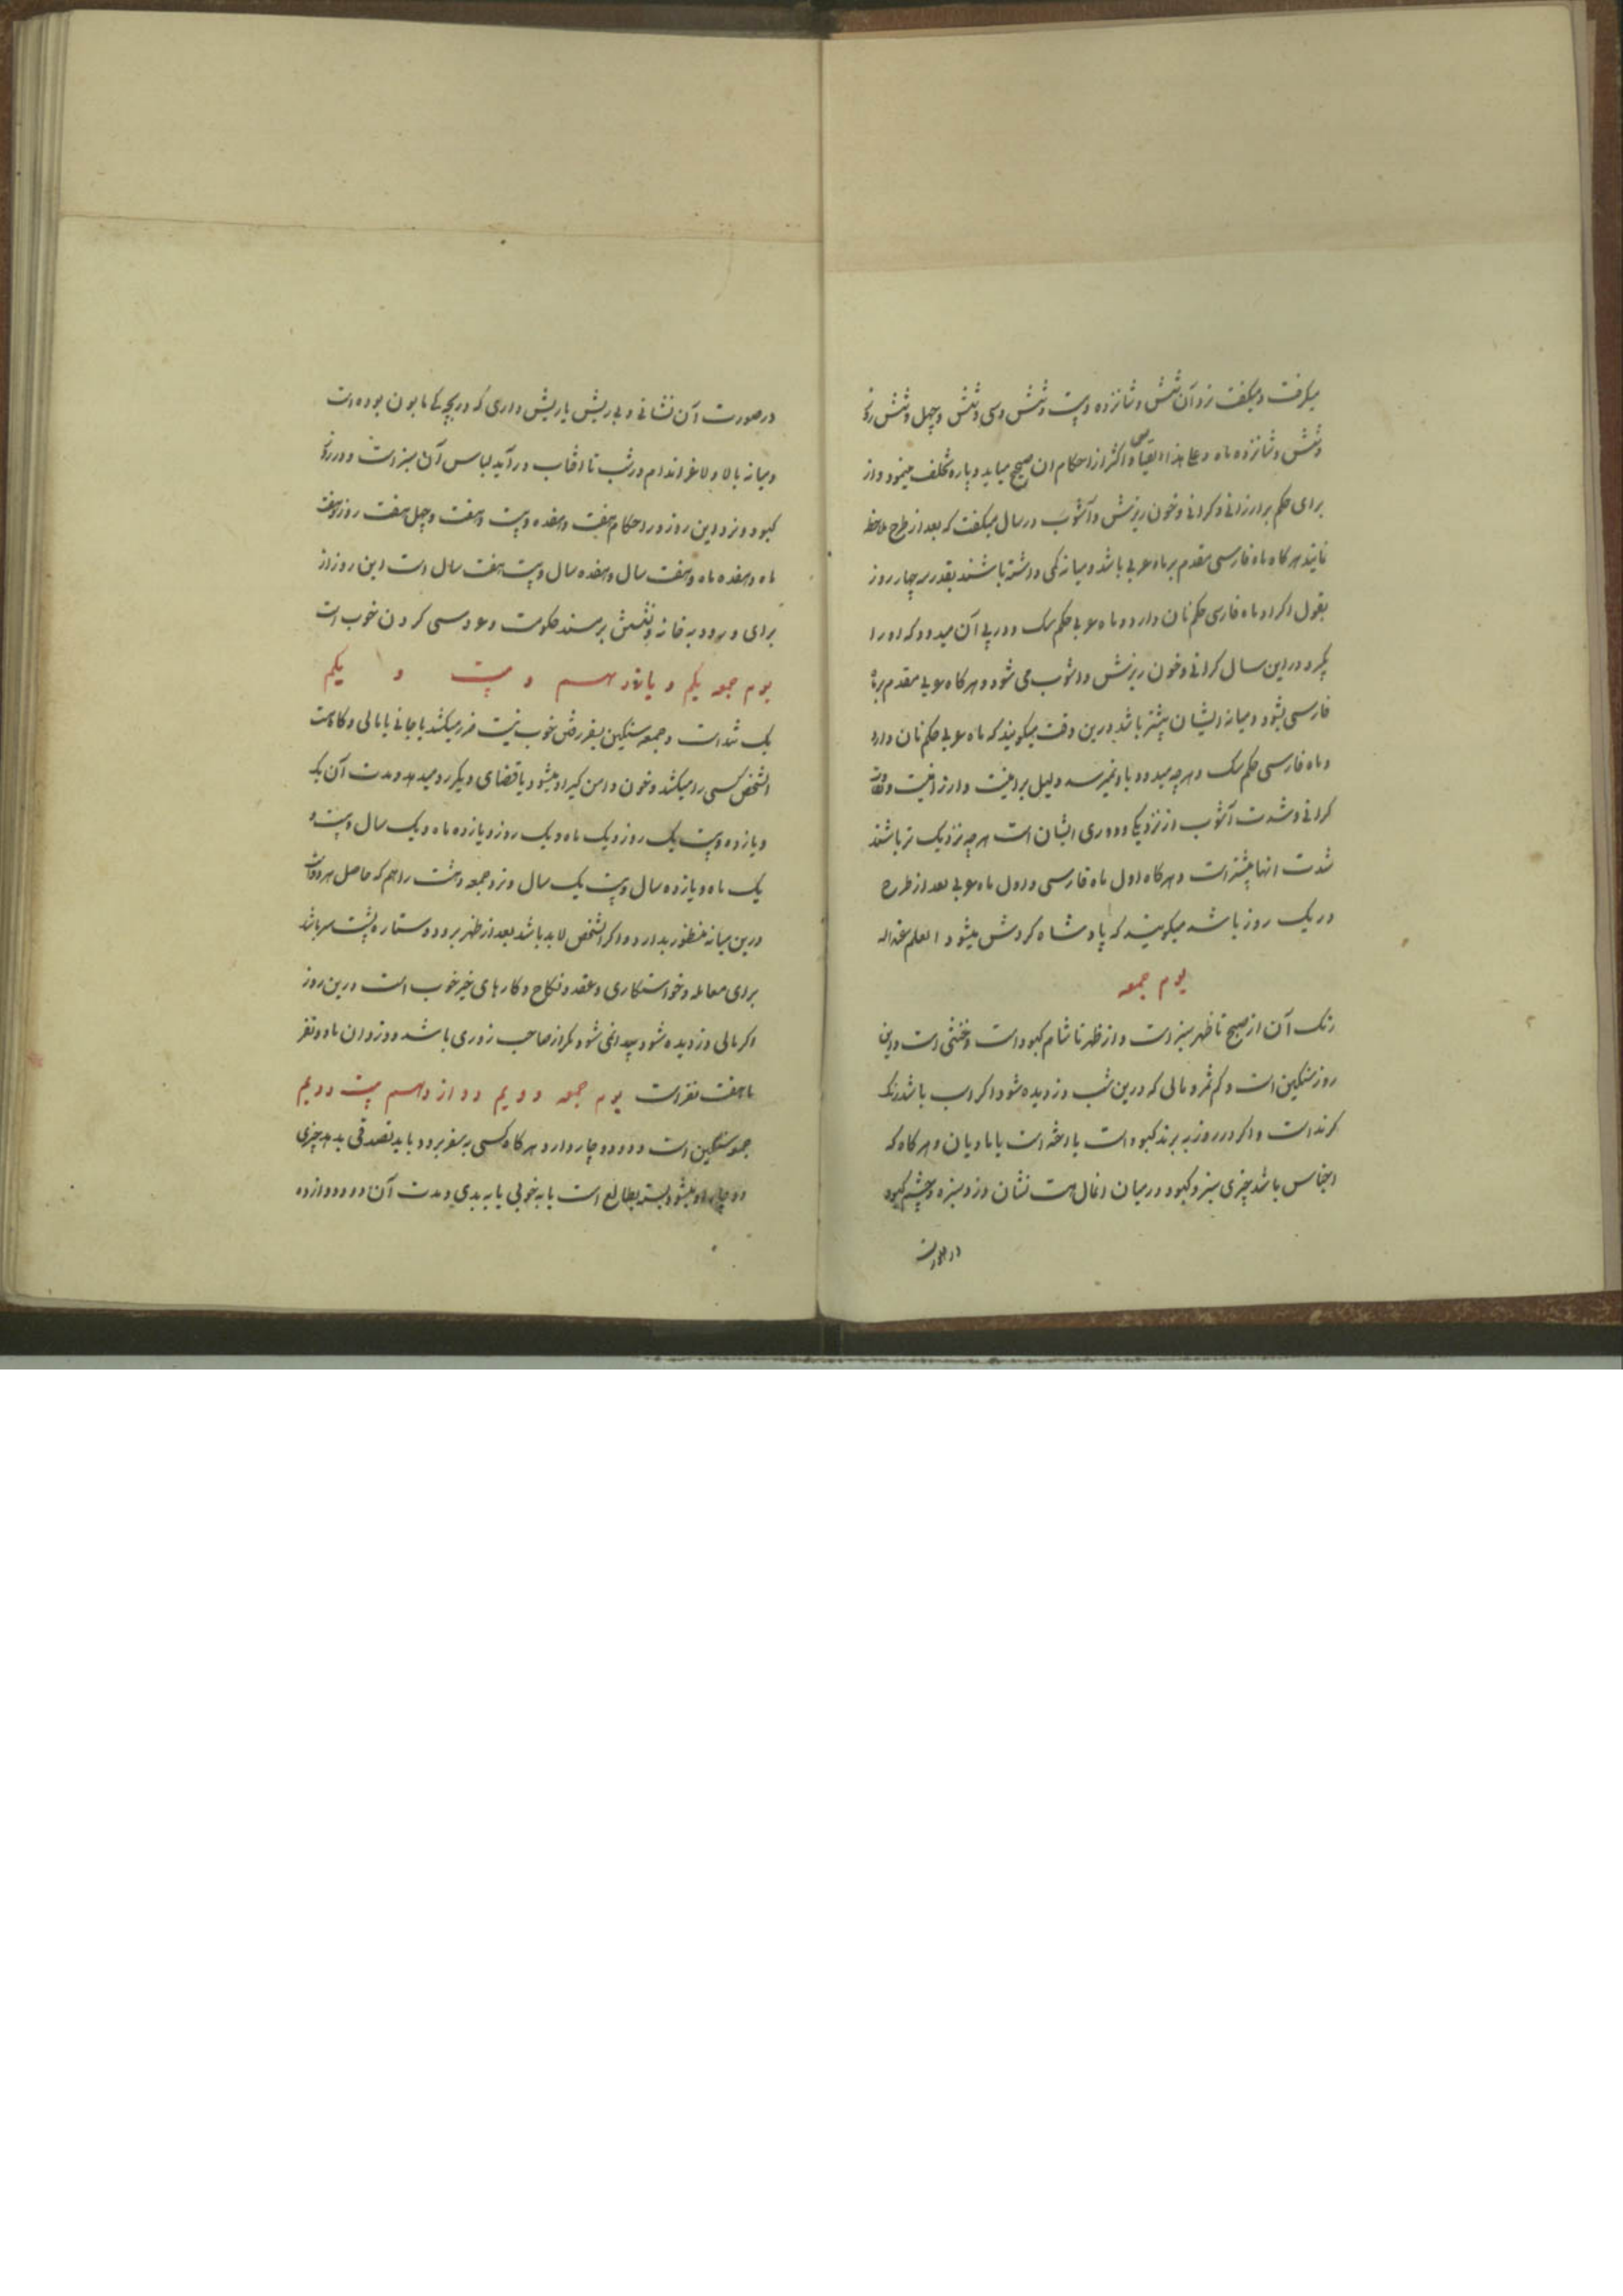 میکرفت و میکفت نزد آن شش و شانزده و بیست و شش و سی و شش و چهل و شش روز
و شش و شانزده ماه و علی هذا القیاسی و اکثر از احکام ان صحیح میاید و پاره تخلف مینمود و از
برای حکم بر ارزانی و کرانی و خون ریزش و آشوب در سال میکفت که بعد از طرح ملاحظه
نمایند هر کاه ماه فارسی مقدم بر ماه عربی باشد و میانه کمی داشته باشند بقدر سه چهار روز
بقول اکراد ماه فارسی حکم نان دارد و ماه عربی حکم سک و در پی آن میدود که او را
بکیرد در این سال کرانی و خون ریزش و اشوب می شود و هر کاه عربی مقدم بر
فارسی بشود و میانه ایشان بیشتر باشد درین وقت میکویند که ماه عربی حکم نان دارد
و ماه فارسی حکم سک و هر چه میدود باو نمیرسد دلیل بر امنیت و ارزانیست
کرانی و شدت آشوب از نزدیکی و دوری ایشان است هر چه نزدیک تر باشند
شدت انها بیشتر است و هر کاه اول ماه فارسی و اول ماه عربی بعد از طرح
در یک روز باشد میکویند که پادشاه کردش میشود العلم عند الله
یوم جمعه
رنک آن از صبح تا ظهر سبز است و از ظهر تا شام کبود است و خنثی است و این
روز سنکین است و کم ثمر و مالی که درین شب دزدیده شود اکر اسب باشد رنک
کرند است و اکر در روز به برند کبود است یا مادیان و هر کاه که
اجناس باشد چیزی سبز و کبود در میان اغال هست نشان دزد سبزه و چشم کبود
در صورت
در صورت آن نشانی و بی ریش یا ریش داری که در بچکی مابون بوده است
و میانه بالا و لاغر اندام در شب تا افتاب درآید لباس آن سبز است و در روز
کبود و نزد این روز در احکام هفت و هفده و بیست و هفت و چهل هفت روز و هفت
ماه و هفده ماه و هفت سال و هفده سال و بیست هفت سال است این روز از
برای ورود به خانه و نشستن بر مسند حکومت و عروسی کردن خوب است
یوم جمعه یکم و یازدهم و بیست و یکم
یک شد است و جمعه سنکین بسفر رفتن خوب نیست ضرر میکشد یا جانی یا مالی و
الشخص کسی را میکشد و خون دامن کیر او میشود یا قضای دیکر رو میدهد و مدت آن یک
و یازده و بیست یک روز و یک ماه و یک روز و یازده ماه و یک سال و بیست و
یک ماه و یازده سال و بیست یک سال و نزد جمعه و هشت را هم که حاصل هر دو
درین میانه منظور بدارد و اکر الشخص لابد باشد بعد از ظهر برود و ستاره پشت سر باشد
برای معامله و خواستکاری و عقد و نکاح و کارهای خیر خوب است درین روز
اکر مالی دزدیده شود پیدا نمی شود مکر از صاحب زوری باشد و دزدان ما دو نفر
تا هفت نفر است یوم جمعه دویم دوازدهم بیست دویم
جمعه سنکین است و دو دو چار دارد هر کاه کسی به سفر برود باید تصدقی بدهد چیزی
دو چار او میشود بسته بطالع است یا به خوبی یا به بدی و مدت آن دو و دوازده